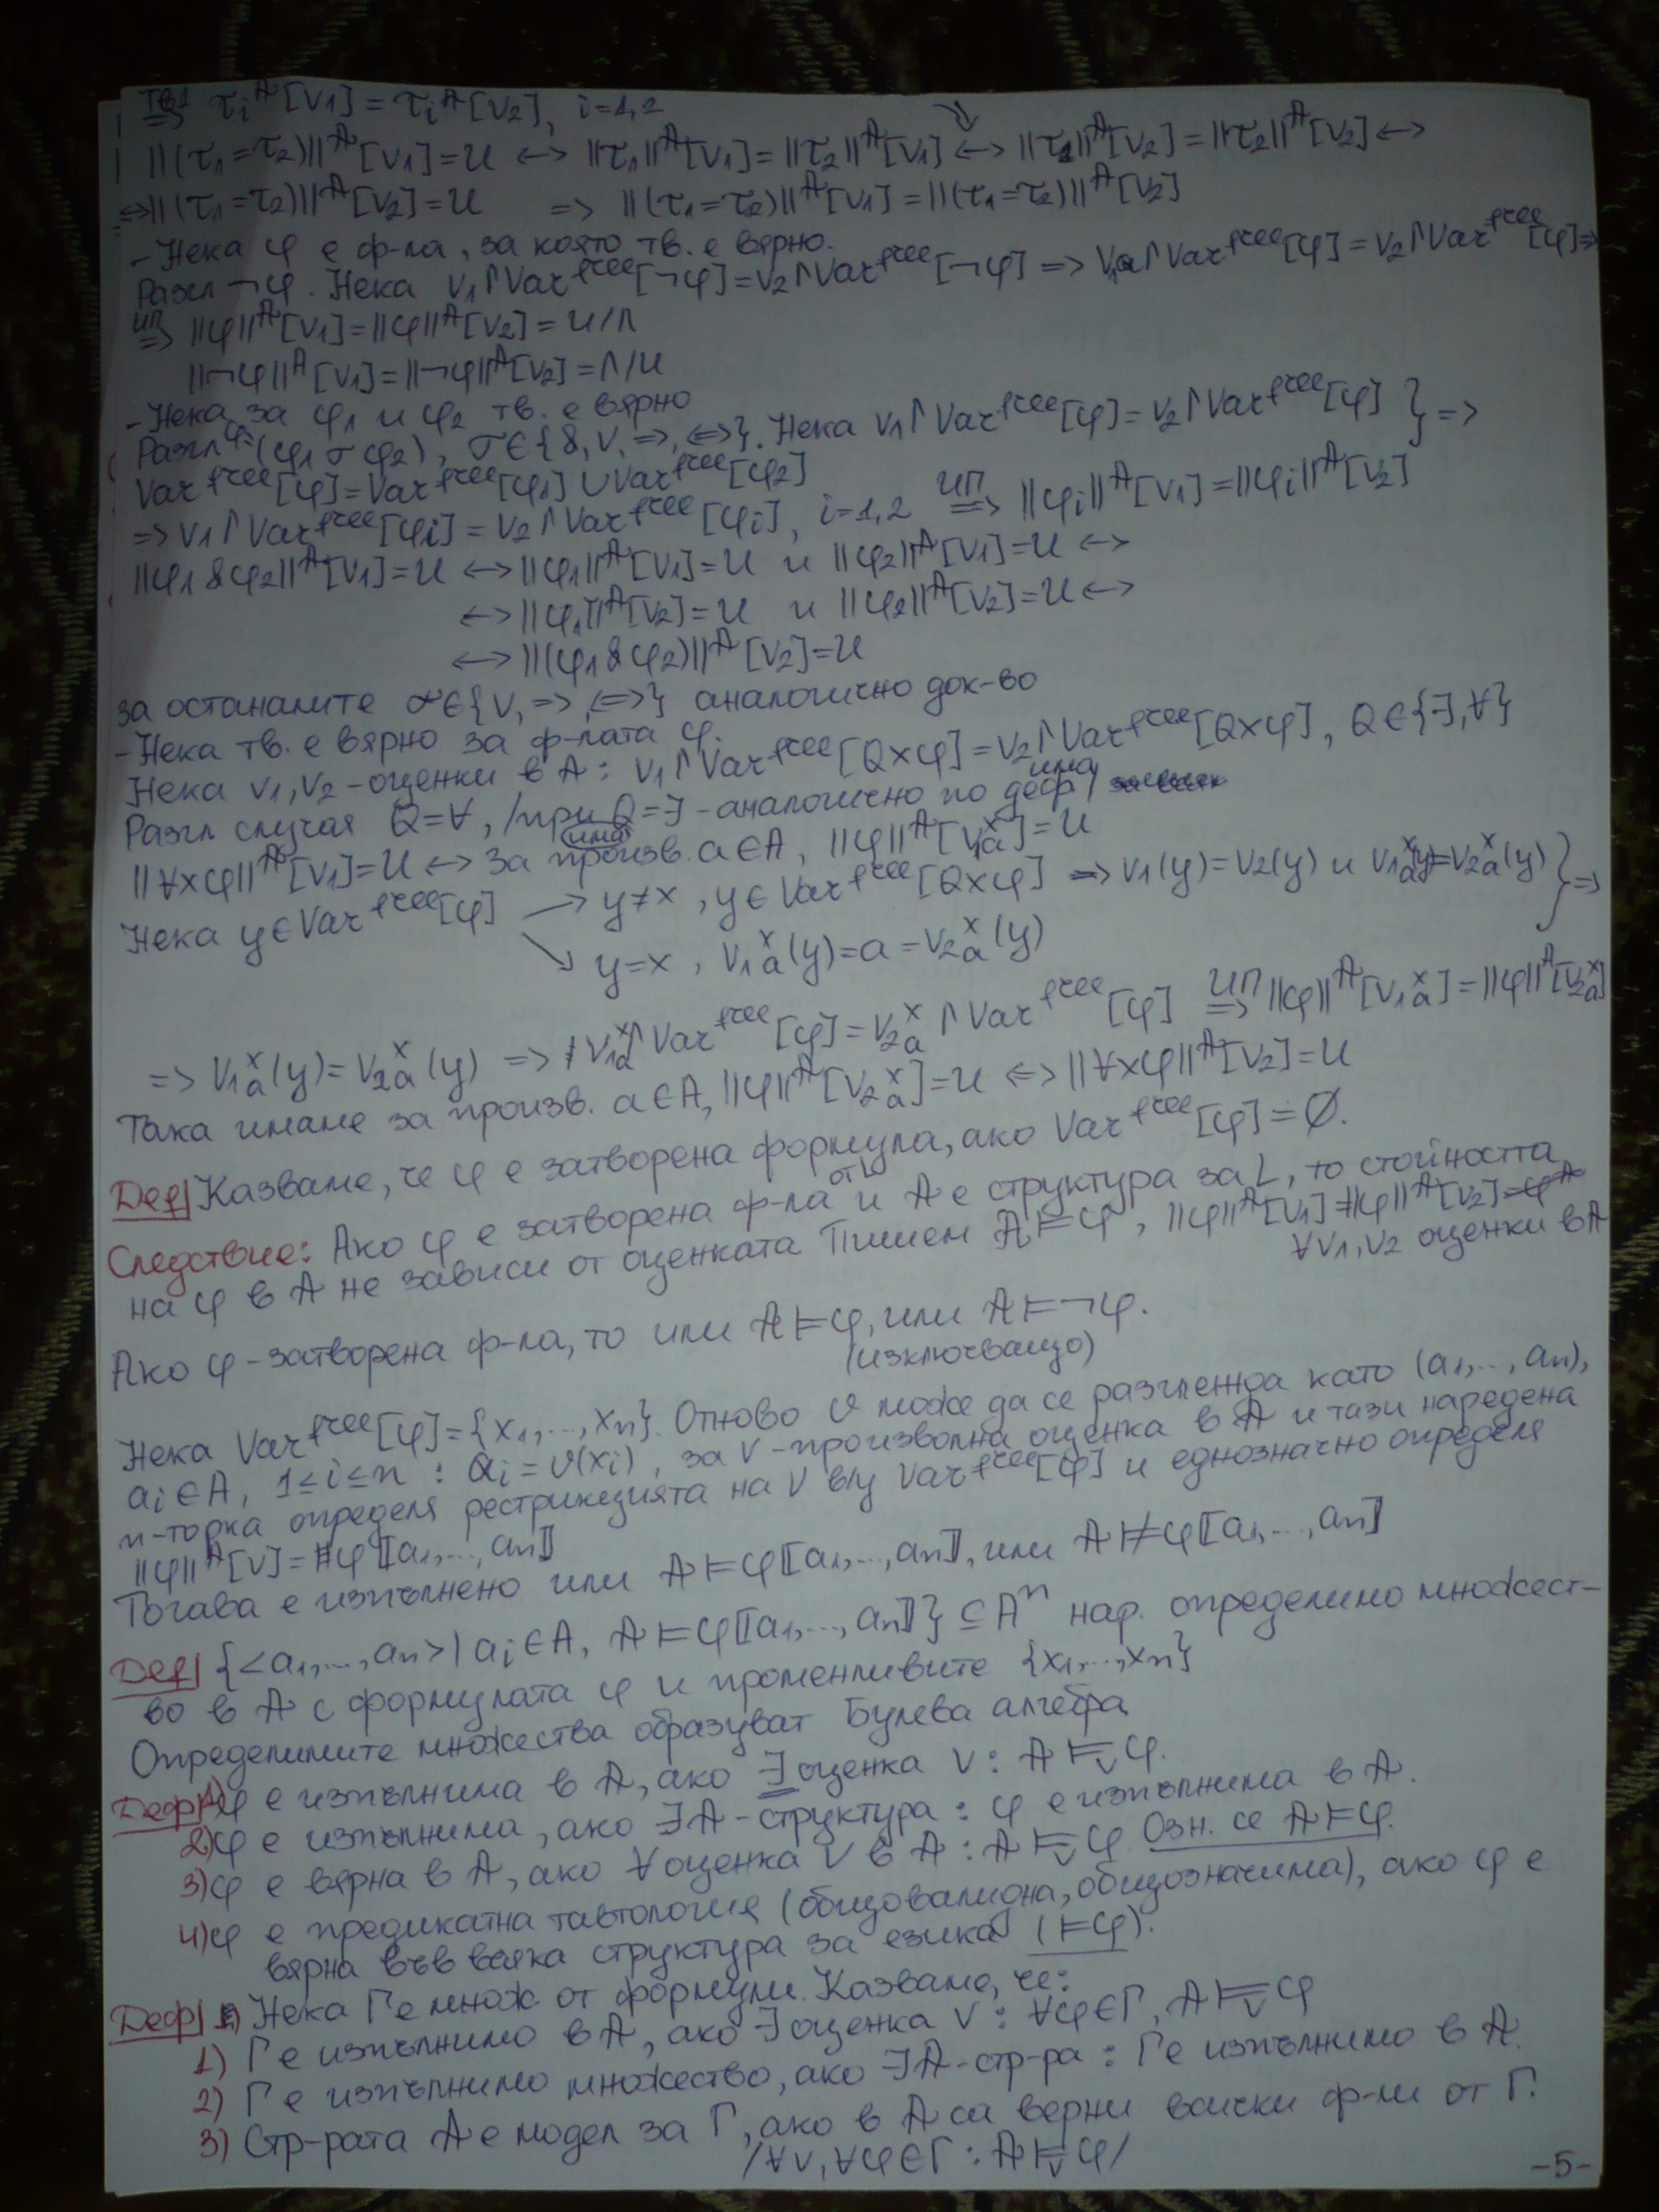 тв1 => τi^𝔸[v1] = τi^𝔸[v2], i=1,2
||(τ1=τ2)||^𝔸[v1]=И <-> ||τ1||^𝔸[v1]=||τ2||^𝔸[v1] <-> ||τ1||^𝔸[v2]=||τ2||^𝔸[v2] <->
<-> ||(τ1=τ2)||^𝔸[v2]=И => ||(τ1=τ2)||^𝔸[v1]=||(τ1=τ2)||^𝔸[v2]
- Нека φ е ф-ла, за която тв. е вярно.
Разгл ¬φ. Нека v1↾Var^free[¬φ]=v2↾Var^free[¬φ] => v1↾Var^free[φ]=v2↾Var^free[φ] =>
ИП => ||φ||^𝔸[v1]=||φ||^𝔸[v2]=И/Л
||¬φ||^𝔸[v1]=||¬φ||^𝔸[v2]=Л/И
- Нека за φ1 и φ2 тв. е вярно
Разгл φ=(φ1 σ φ2), σ∈{&,∨,=>,<=>}. Нека v1↾Var^free[φ]=v2↾Var^free[φ] } =>
Var^free[φ]=Var^free[φ1]∪Var^free[φ2]
=> v1↾Var^free[φi]=v2↾Var^free[φi], i=1,2 ИП => ||φi||^𝔸[v1]=||φi||^𝔸[v2]
||φ1&φ2||^𝔸[v1]=И <-> ||φ1||^𝔸[v1]=И и ||φ2||^𝔸[v1]=И <->
<-> ||φ1||^𝔸[v2]=И и ||φ2||^𝔸[v2]=И <->
<-> ||(φ1&φ2)||^𝔸[v2]=И
за останалите σ∈{∨,=>,<=>} аналогично док-во
- Нека тв. е вярно за ф-лата φ.
Нека v1,v2-оценки в 𝔸: v1↾Var^free[Qxφ]=v2↾Var^free[Qxφ], Q∈{∃,∀}
Разгл случая Q=∀, /при Q=∃ - аналогично по деф/ има
||∀xφ||^𝔸[v1]=И <-> За произв. (има) a∈A, ||φ||^𝔸[v1^x_a]=И
Нека y∈Var^free[φ] → y≠x, y∈Var^free[Qxφ] => v1(y)=v2(y) и v1^x_a(y)=v2^x_a(y) } =>
↘ y=x, v1^x_a(y)=a=v2^x_a(y)
=> v1^x_a(y)=v2^x_a(y) => v1^x_a↾Var^free[φ]=v2^x_a↾Var^free[φ] ИП => ||φ||^𝔸[v1^x_a]=||φ||^𝔸[v2^x_a]
Така имаме за произв. a∈A, ||φ||^𝔸[v2^x_a]=И <=> ||∀xφ||^𝔸[v2]=И
Def| Казваме, че φ е затворена формула, ако Var^free[φ]=∅.
Следствие: Ако φ е затворена ф-ла от L и 𝔸 е структура за L, то стойността
на φ в 𝔸 не зависи от оценката Пишем 𝔸⊨φ, ||φ||^𝔸[v1]=||φ||^𝔸[v2]
∀v1,v2 оценки в 𝔸
Ако φ-затворена ф-ла, то или 𝔸⊨φ, или 𝔸⊨¬φ.
(изключващо)
Нека Var^free[φ]={x1,...,xn}. Отново v може да се разглежда като (a1,...,an),
ai∈A, 1≤i≤n : ai=v(xi), за v-произволна оценка в 𝔸 и тази наредена
n-торка определя рестрикцията на v в/у Var^free[φ] и еднозначно определя
||φ||^𝔸[v]=φ⟦a1,...,an⟧
Тогава е изпълнено или 𝔸⊨φ⟦a1,...,an⟧, или 𝔸⊭φ⟦a1,...,an⟧
Def| {<a1,...,an>|ai∈A, 𝔸⊨φ⟦a1,...,an⟧}⊆A^n нар. определимо множест-
во в 𝔸 с формулата φ и променливите {x1,...,xn}
Определимите множества образуват Булева алгебра
Деф| 1) φ е изпълнима в 𝔸, ако ∃ оценка v: 𝔸⊨_v φ.
2) φ е изпълнима, ако ∃𝔸-структура: φ е изпълнима в 𝔸.
3) φ е вярна в 𝔸, ако ∀ оценка v в 𝔸: 𝔸⊨_v φ Озн. се 𝔸⊨φ.
4) φ е предикатна тавтология (общовалидна, общозначима), ако φ е
вярна във всяка структура за езика (⊨φ).
Деф| Нека Γ е множ. от формули. Казваме, че:
1) Γ е изпълнимо в 𝔸, ако ∃ оценка v: ∀φ∈Γ, 𝔸⊨_v φ
2) Γ е изпълнимо множество, ако ∃𝔸-стр-ра: Γ е изпълнимо в 𝔸.
3) Стр-рата 𝔸 е модел за Γ, ако в 𝔸 са верни всички ф-ли от Γ.
/∀v,∀φ∈Γ: 𝔸⊨_v φ/
-5-